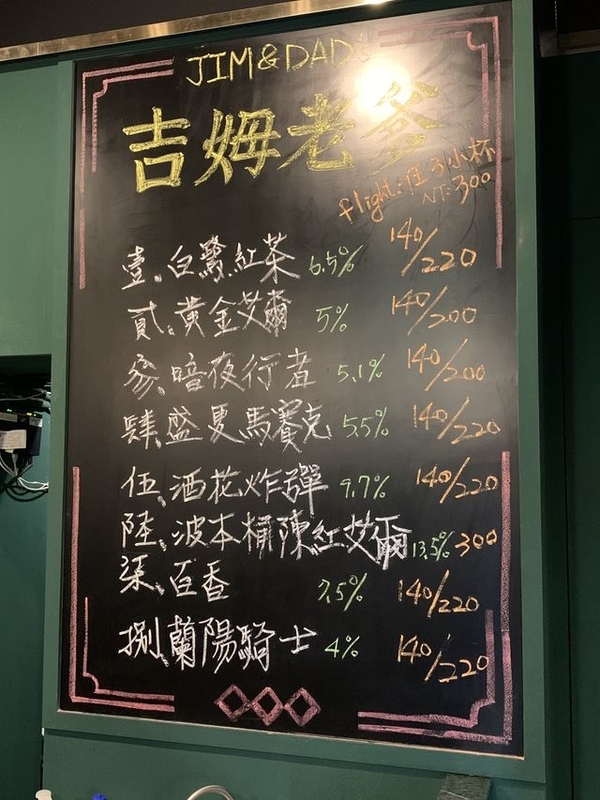 JIM & DAD'S
吉姆老爹
flight:任3小杯
NT:300
壹、白鷺紅茶 6.5% 140/220
貳、黃金艾爾 5% 140/200
參、暗夜行者 5.1% 140/200
肆、盛夏馬賽克 5.5% 140/220
伍、酒花炸彈 9.7% 140/220
陸、波本桶陳紅艾爾 13.5% 300
柒、百香 7.5% 140/220
捌、蘭陽騎士 4% 140/220